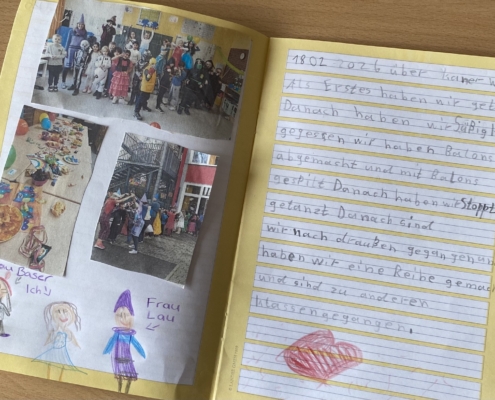 au Baser
Ich
Frau
Lau
18.02 2026 über
Als Erstes haben wir
Danach haben wir Süßig
gegessen wir haben Balons
abgemacht und mit Balons
gespilt Danach haben wir Stoppt
getanzt Danach sind
wir nach draußen gegangen
haben wir eine Reihe gemac
und sind zu anderen
klassengegangen.